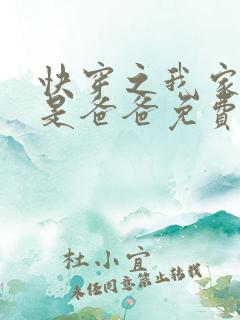 快穿之我家
是爸爸免费
杜小宜
未经同意禁止转载